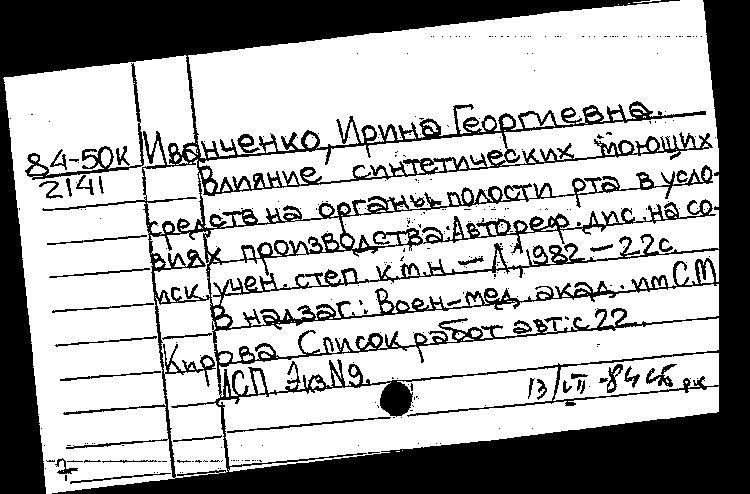 84-50к
2141
Иванченко, Ирина Георгиевна.
Влияние синтетических моющих
средств на органы полости рта в усло-
виях производства: Автореф. дис. на со-
иск. учен. степ. к.т.н. - Л., 1982. - 22 с.
В надзаг.: Воен-мед. акад. им С.М
Кирова Список работ авт: с 22.
ДСП. Экз N9.
13/VII-84
7